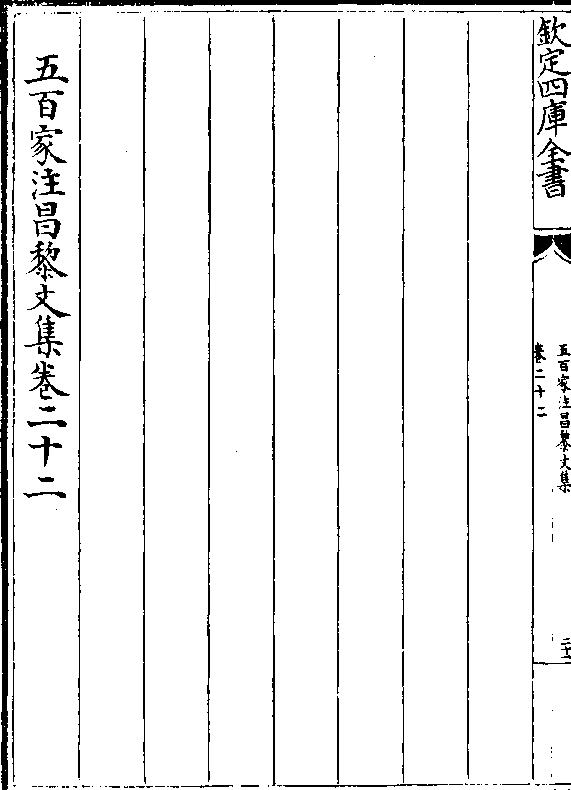 欽定四庫全書
五百家注昌黎文集
卷二十二
五百家注昌黎文集卷二十二